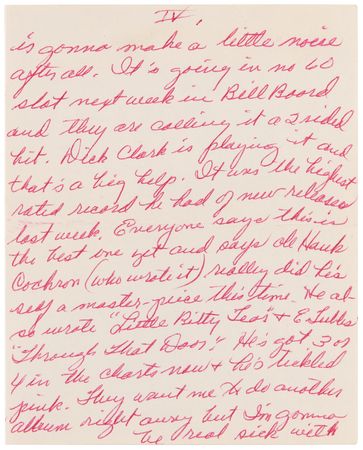 IV,
is gonna make a little noise
after all. It's going in no 60
slot next week in Bill Board
and they are calling it a 2 sided
hit. Dick Clark is playing it and
that's a big help. It was the highest
rated record he had of new releases
last week. Everyone says this is
the best one yet and says ole Hank
Cochron (who wrote it) really did his
self a master-piece this time. He al-
so wrote "Little Bitty Tear" & E. Tubbs'
"Through That Door." He's got 3 or
4 in the charts now & he's tickled
pink. They want me to do another
album right away but I'm gonna
be real sick with